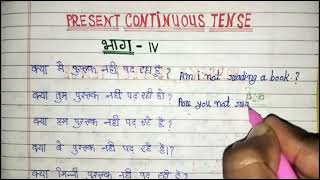 PRESENT CONTINUOUS TENSE
भाग - IV
क्या मैं पुस्तक नहीं पढ़ रहा हूँ ? Am I not reading a book ?
क्या तुम पुस्तक नहीं पढ़ रही हो ? Are you not rea
क्या हम पुस्तक नहीं पढ़ रहे हैं ?
क्या वे पुस्तक नहीं पढ़ रहे हैं ?
क्या मिन्नी पुस्तक नहीं पढ़ रही है ?